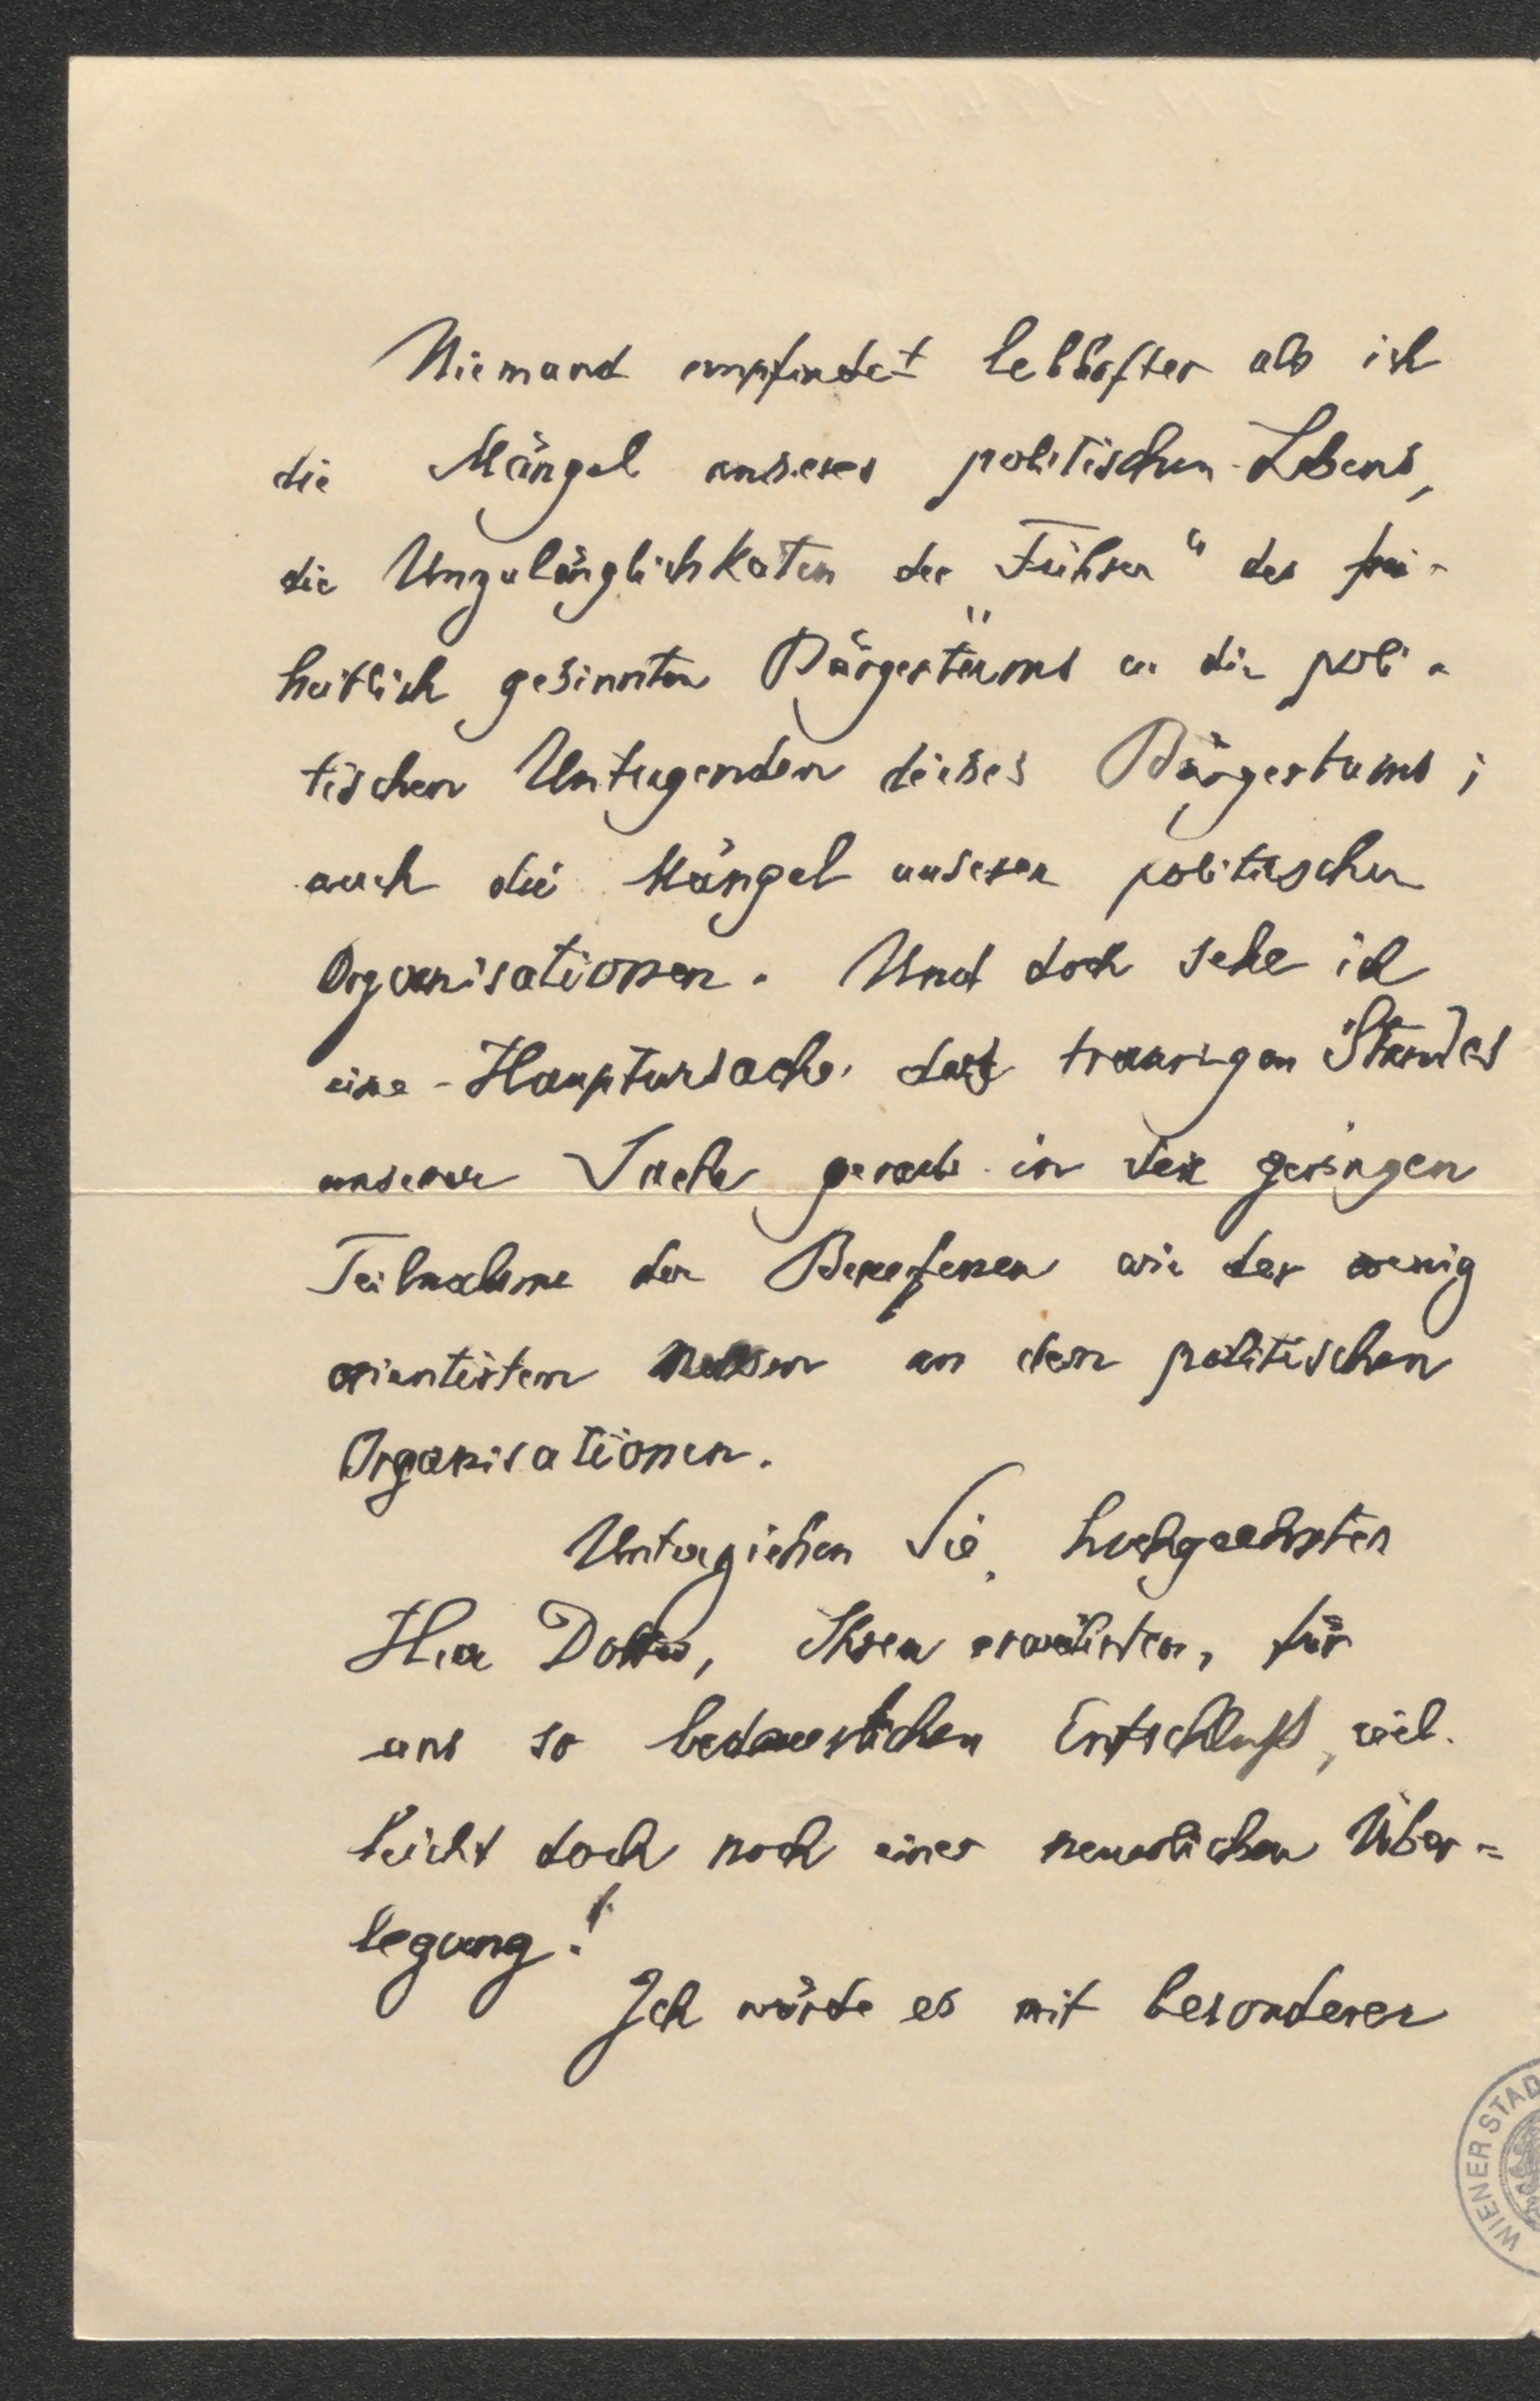 Niemand empfindet lebhafter als ich
die Mängel unseres politischen Lebens,
die Unzulänglichkeiten der „Führer“ des frei-
heitlich gesinnten Bürgertums u. die poli-
tischen Untugenden dieses Bürgertums;
auch die Mängel unserer politischen
Organisationen. Und doch sehe ich
eine Hauptursache des traurigen Standes
unserer Sache gerade in der geringen
Teilnahme der Berufenen wie der wenig
orientierten Massen an den politischen
Organisationen.
Unterziehen Sie, hochgeehrter
Herr Doktor, Ihren erwähnten, für
uns so bedauerlichen Entschluß, viel-
leicht doch noch einer neuerlichen Über-
legung!
Ich würde es mit besonderer
WIENER STAD